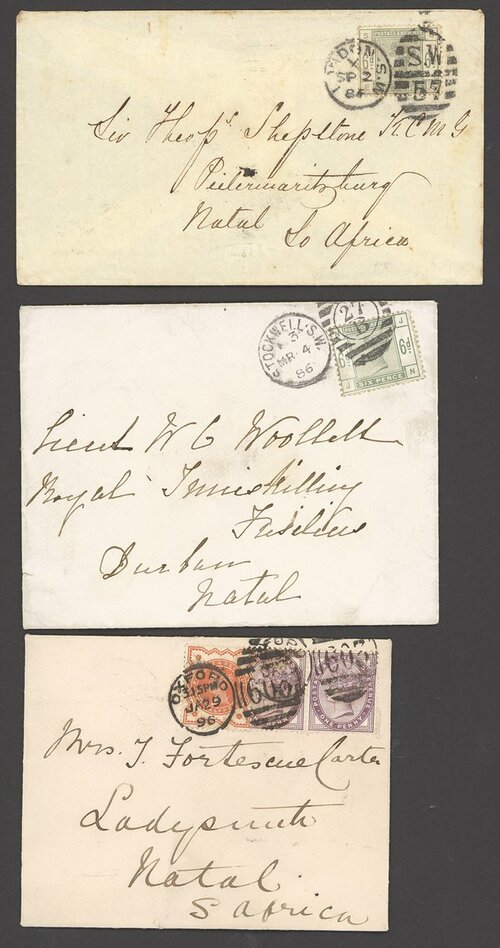 LONDON.S.W.
X
SP 2
84
SW
57
POSTAGE & REVENUE
Sir Theops Shepstone K.C.M.G
Pietermaritzburg
Natal So Africa
STOCKWELL.S.W.
3
MR 4
86
27
J
6d. 6d.
J SIX PENCE N
Lieut W C Woollett
Royal Inniskilling
Fusiliers
Durban
Natal
OXFORD
3.15PM
JA 29
96
603
603
ONE PENNY
Mrs. T. Fortescue Carter
Ladysmith
Natal.
S Africa